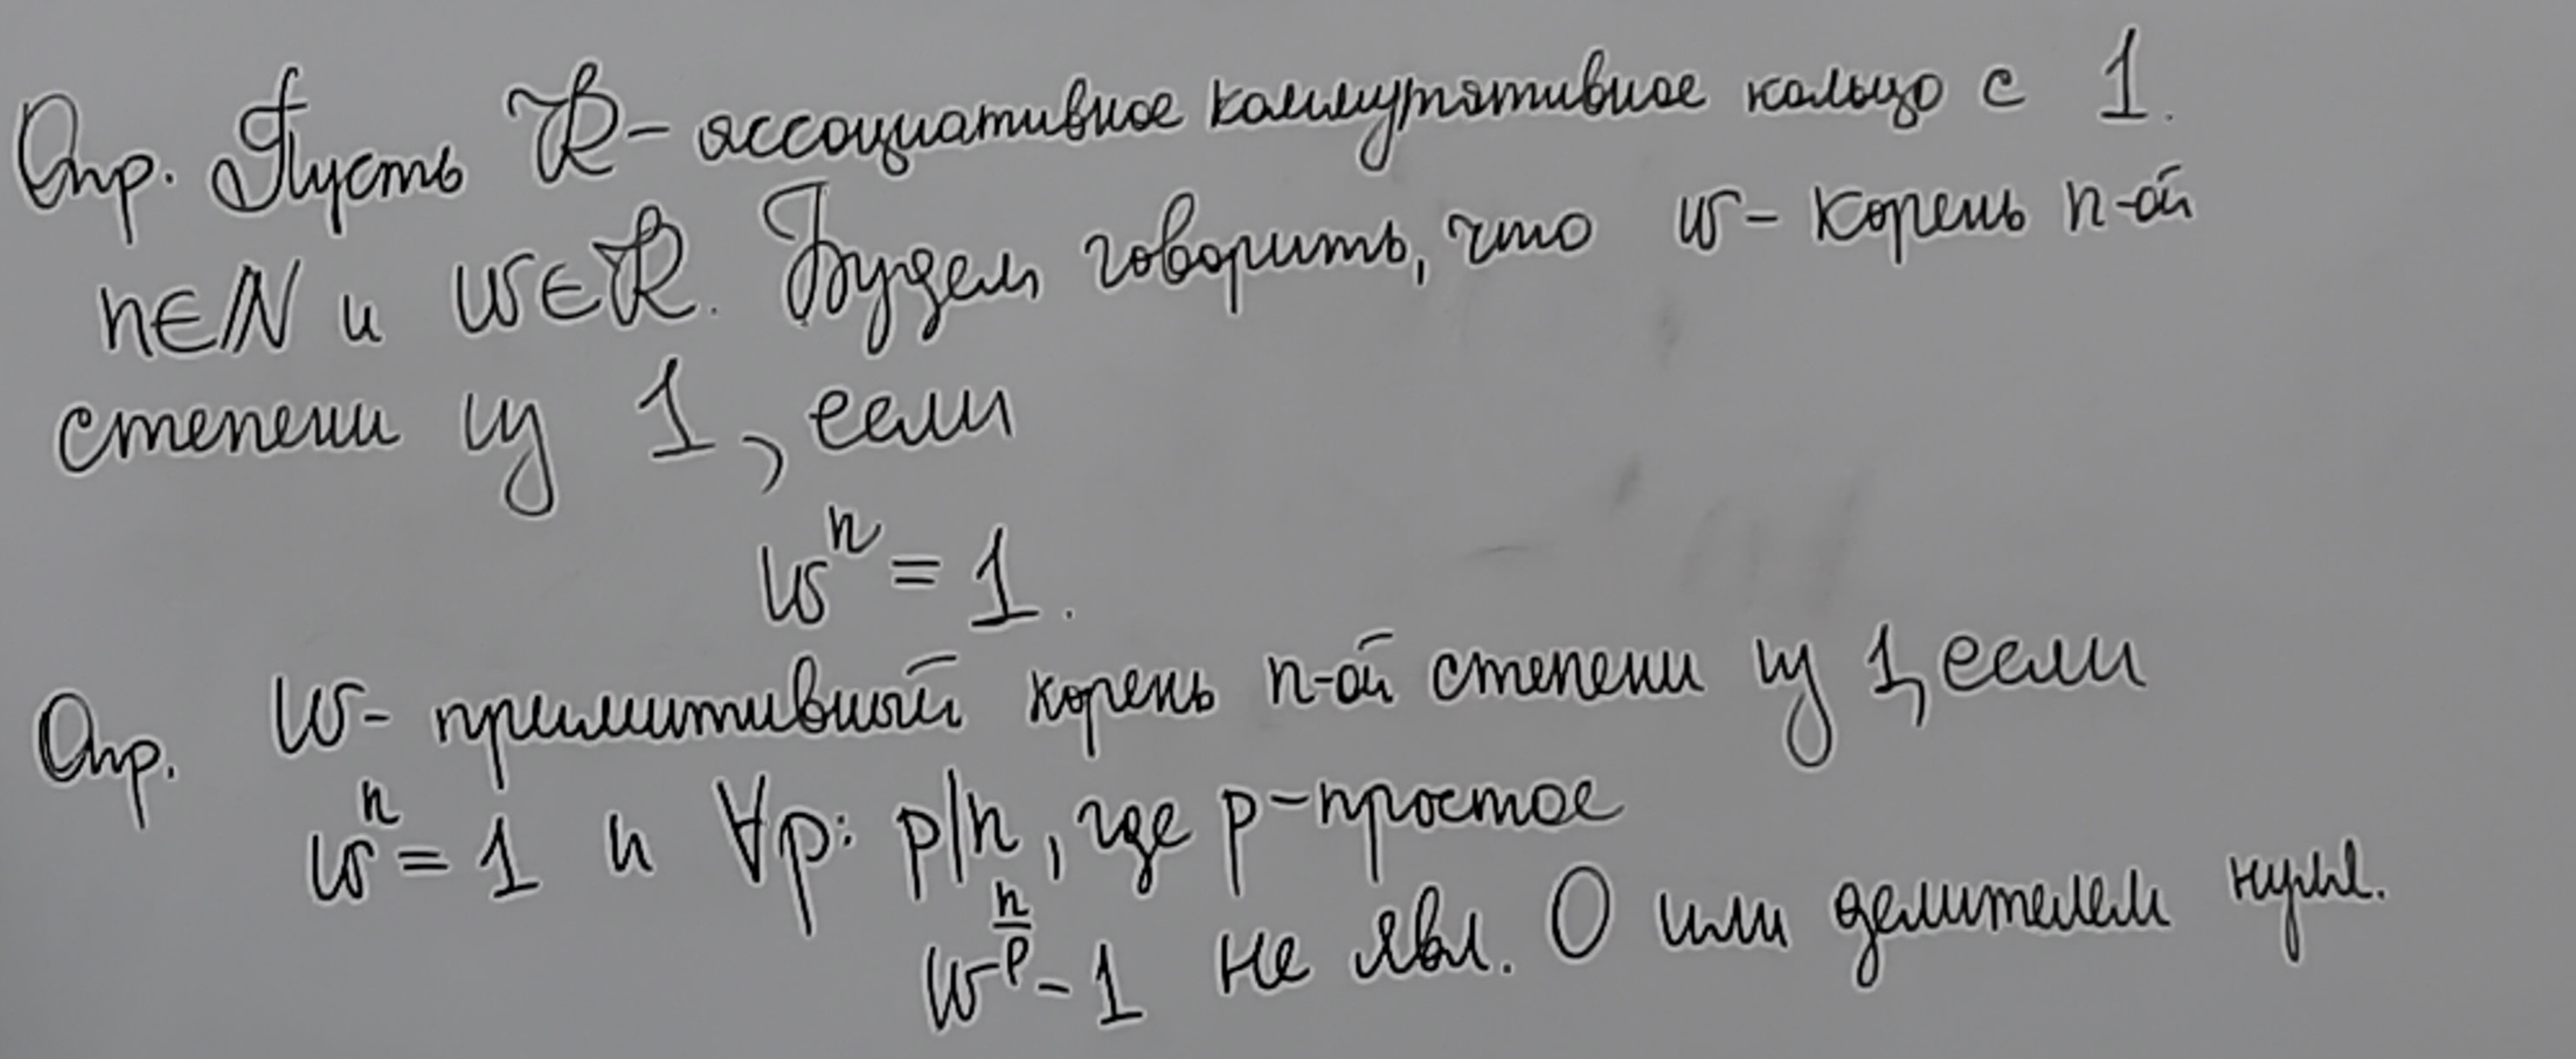 Опр. Пусть R - ассоциативное коммутативное кольцо с 1.
n∈ℕ и w∈R. Будем говорить, что w - корень n-ой
степени из 1, если
wⁿ = 1.
Опр. w - примитивный корень n-ой степени из 1, если
wⁿ = 1 и ∀p: p|n, где p - простое
w^(n/p) - 1 не явл. 0 или делителем нуля.